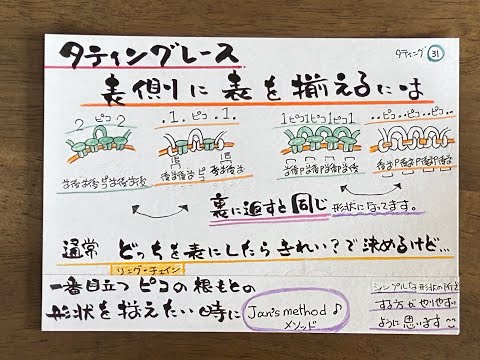 タティングレース
タティング 31
表側に表を揃えるには
2 ピコ 2
.1. ピコ .1.
1ピコ1ピコ1ピコ1
..ピコ..ピコ..ピコ..
裏に返すと同じ 形状になってます。
通常 どっちを表にしたらきれい?で決めるけど…
リング・チェイン
一番目立つ ピコの根もとの
形状を揃えたい時に
Jan's method ♪
メソッド
シンプルな形状の所を
する方がやりやすい
ように思います